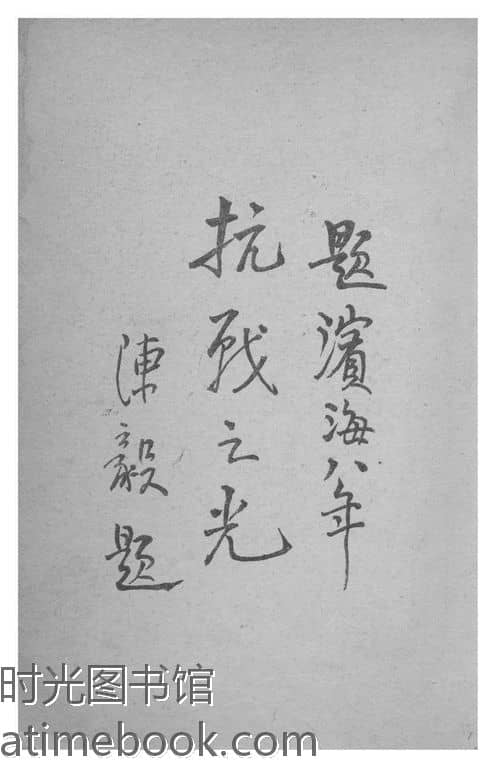 题濱海八年
抗战之光
陳毅题
时光图书馆
atimebook.com